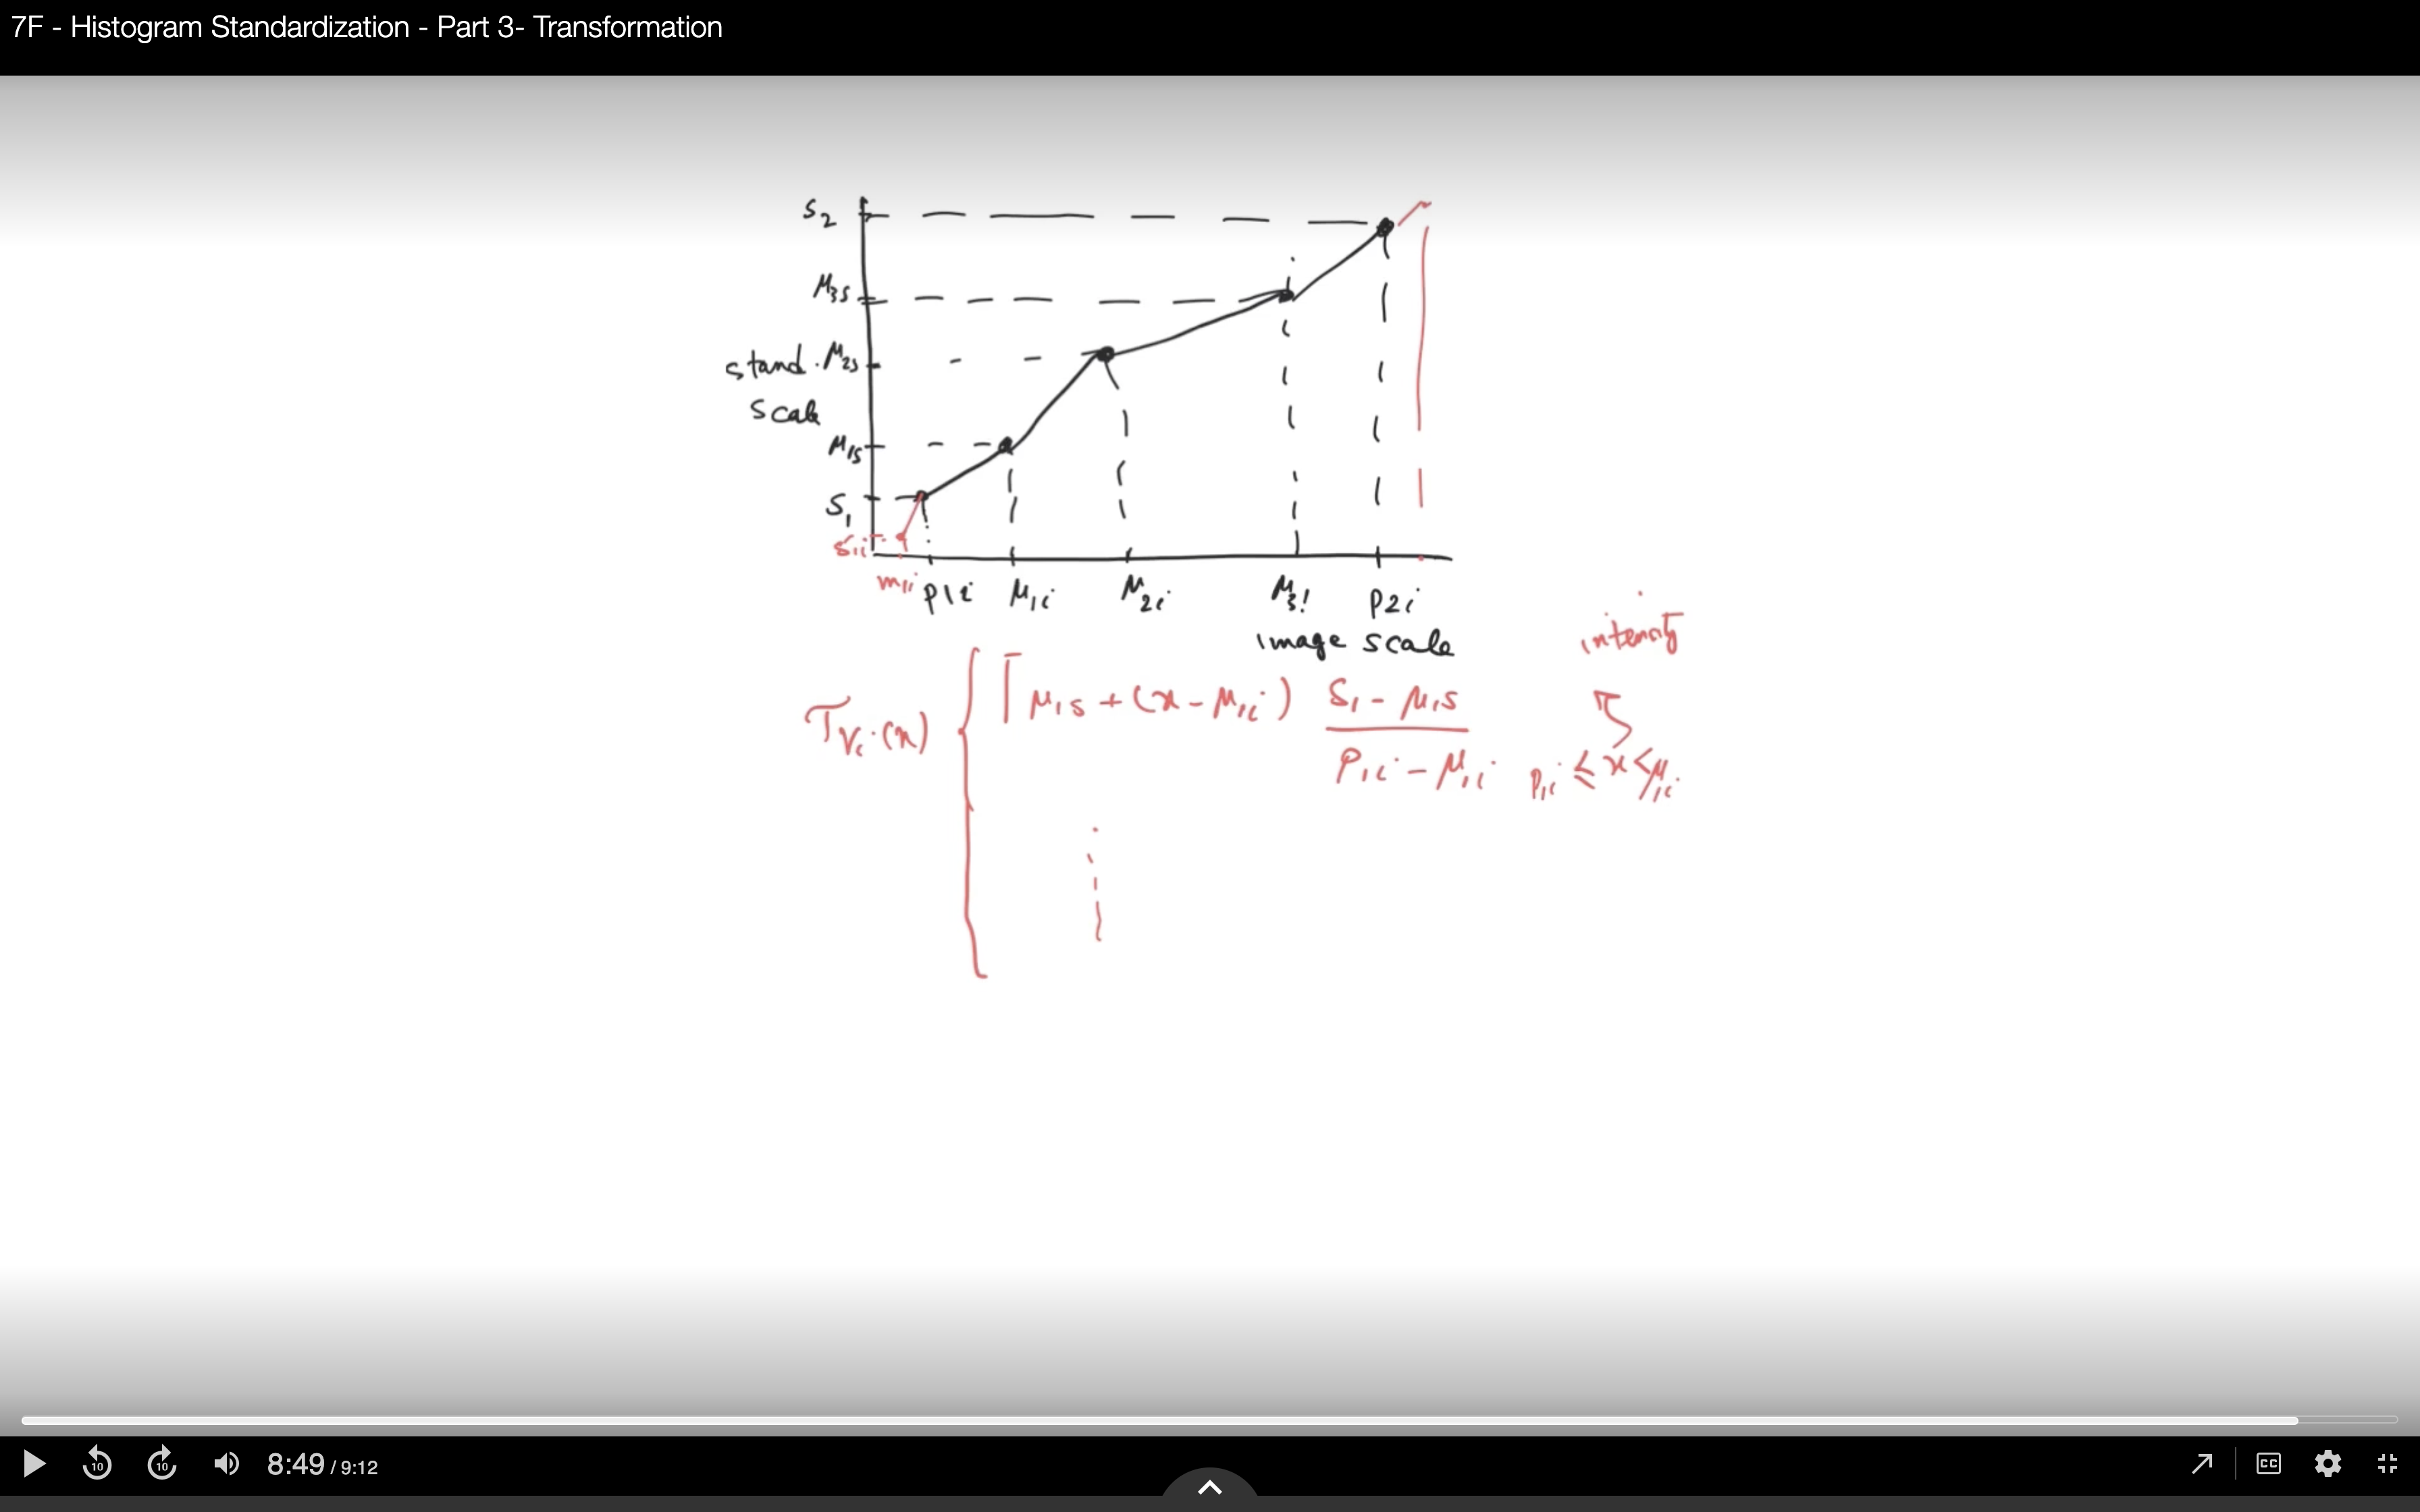 7F - Histogram Standardization - Part 3- Transformation
s₂
μ₃s
stand. μ₂s
scale
μ₁s
S₁
s₁i
m₁i p1i μ₁i μ₂i μ₃i p2i
image scale
intensity
T_Vi(x) { ⌈ μ₁s + (x - μ₁i) (S₁ - μ₁s) / (P₁i - μ₁i) p₁i ≤ x < μ₁i
10 10 8:49 / 9:12 CC